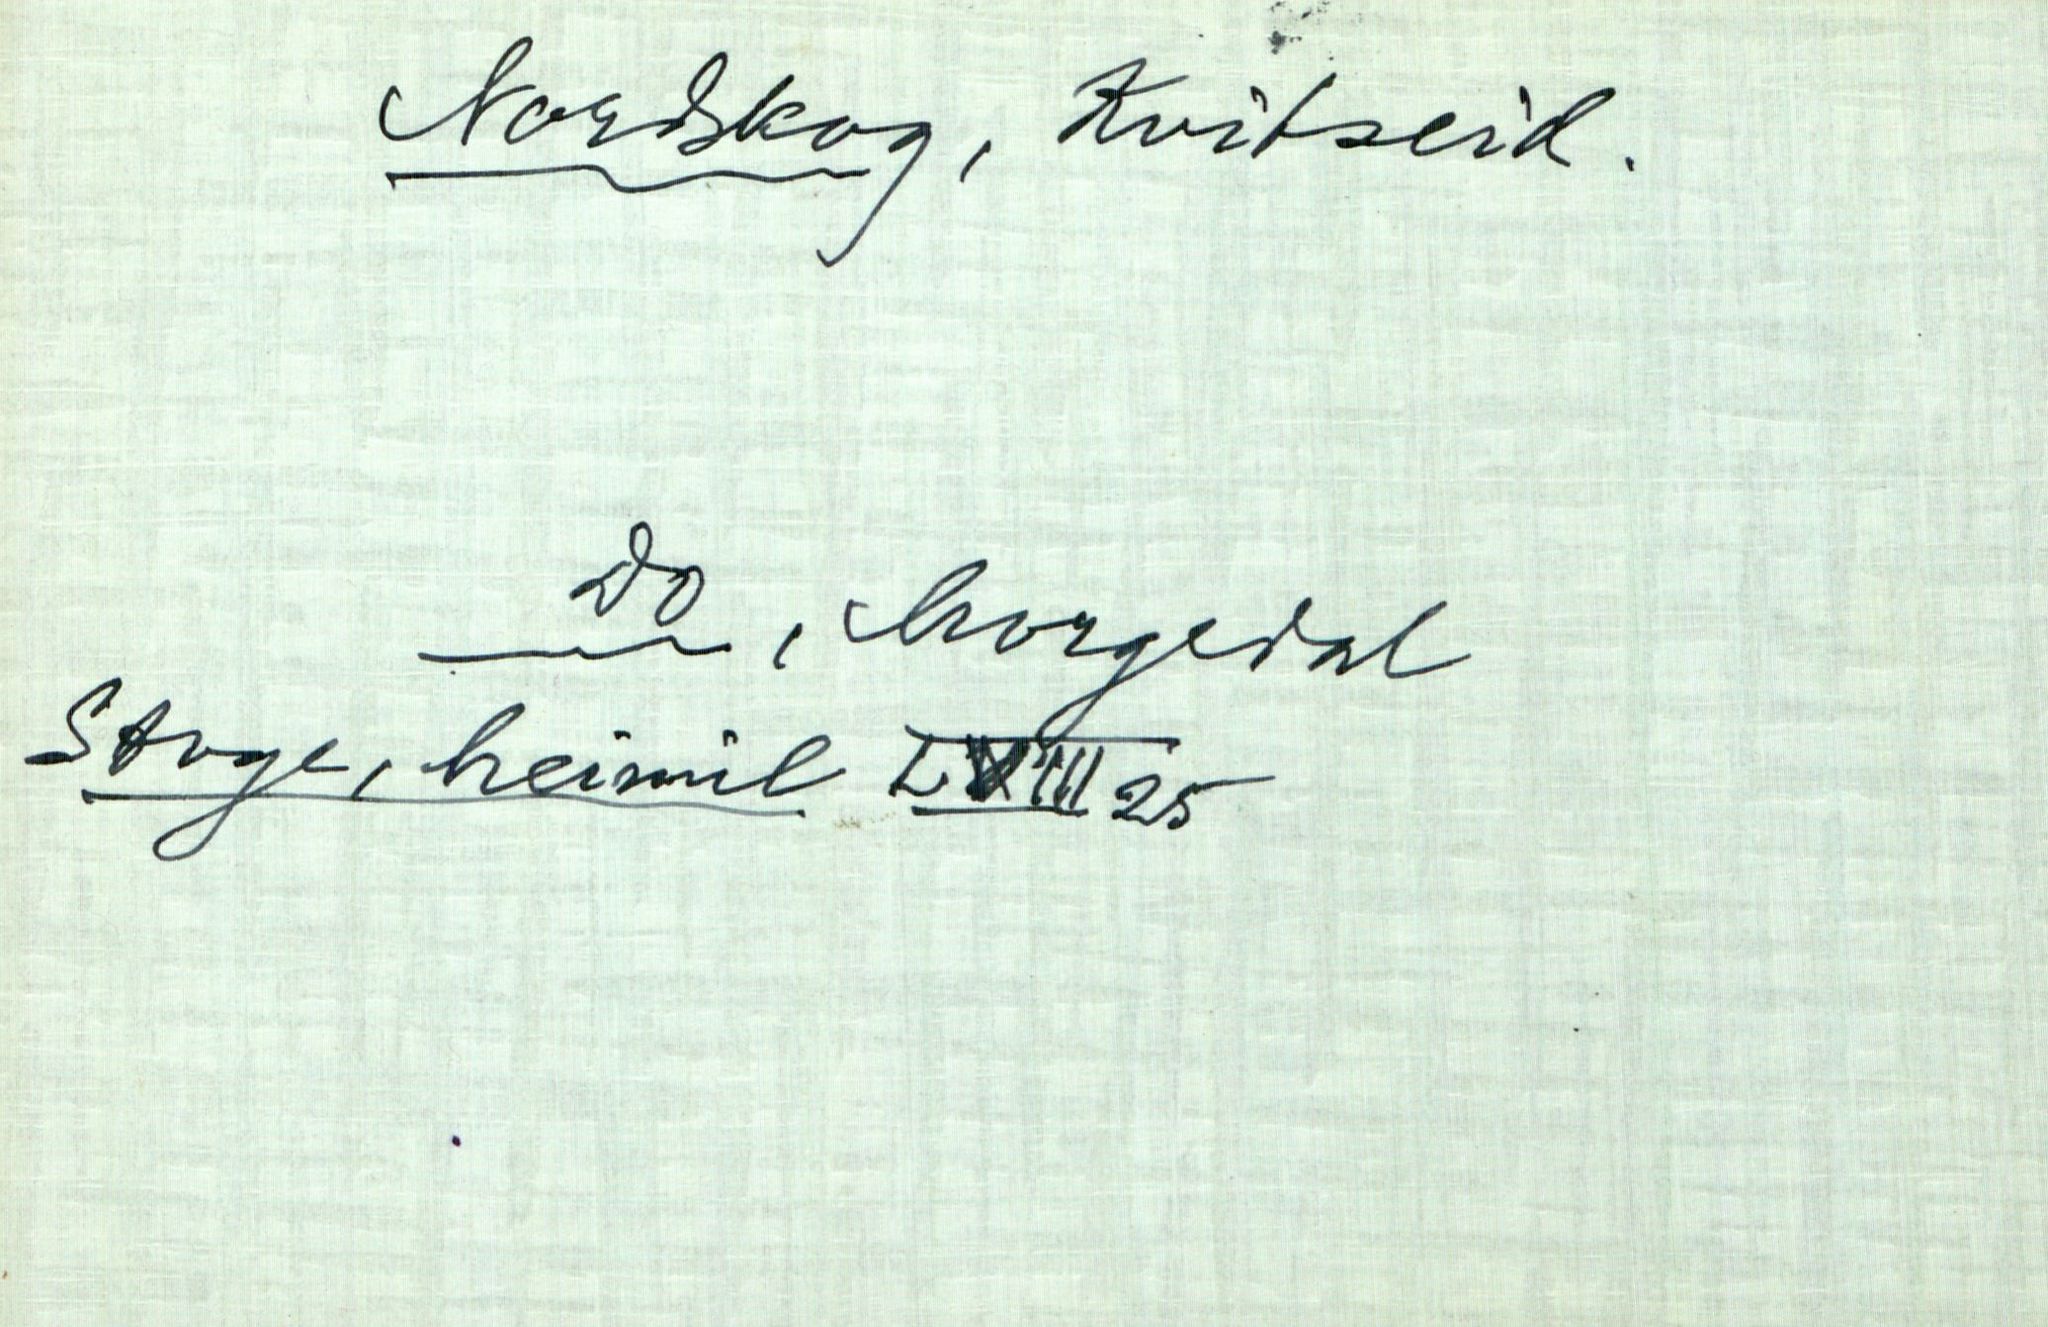 Nordskog, Kvitseid.
Do, Morgedal
Stoge, heimil LXIII 25